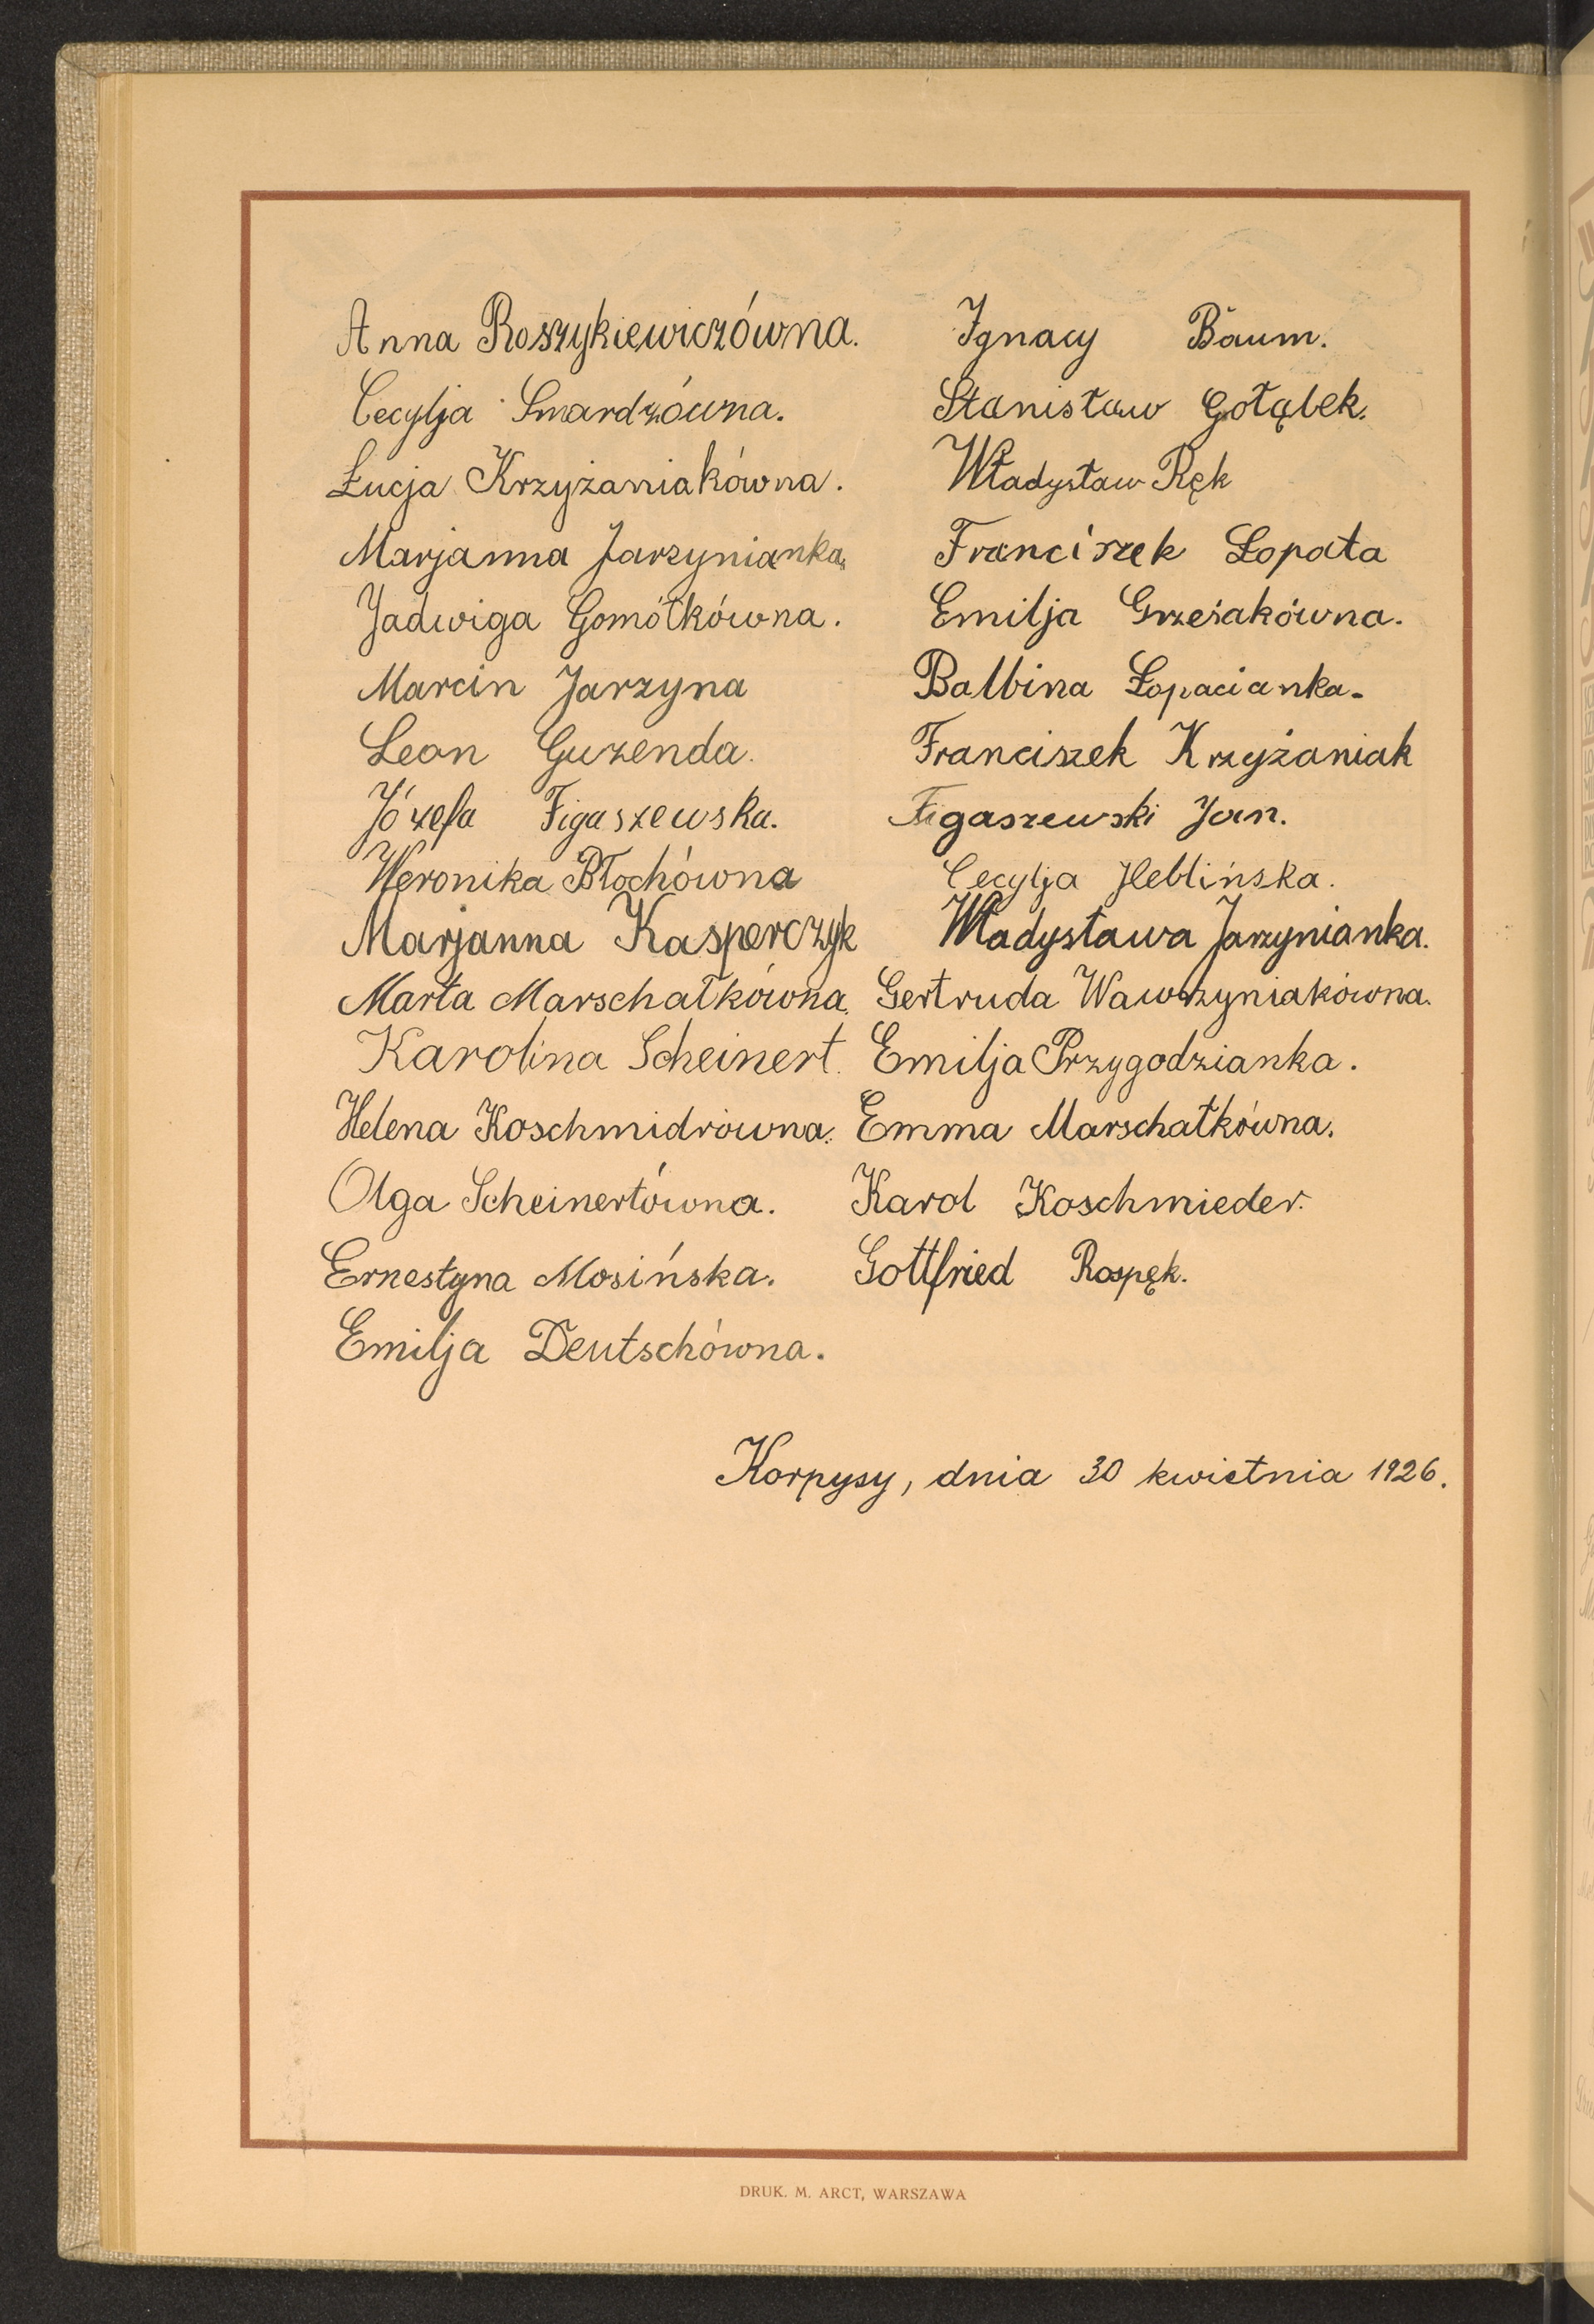 Anna Roszykiewiczówna. Ignacy Baum.
Cecylja Smardzówna. Stanisław Gołąbek.
Łucja Krzyżaniakówna. Władysław Ręk
Marjanna Jarzynianka. Franciszek Łopata
Jadwiga Gomółkówna. Emilja Grześakówna.
Marcin Jarzyna Balbina Łopacianka.
Leon Guzenda. Franciszek Krzyżaniak
Józefa Figaszewska. Figaszewski Jan.
Weronika Błochówna Cecylja Heblińska.
Marjanna Kasperczyk Władysława Jarzynianka.
Marta Marschałkówna. Gertruda Wawrzyniakówna.
Karolina Scheinert. Emilja Przygodzianka.
Helena Koschmidrówna. Emma Marschałkówna.
Olga Scheinertówna. Karol Koschmieder.
Ernestyna Mosińska. Gottfried Rospęk.
Emilja Deutschówna.
Korpysy, dnia 30 kwietnia 1926.
DRUK. M. ARCT, WARSZAWA